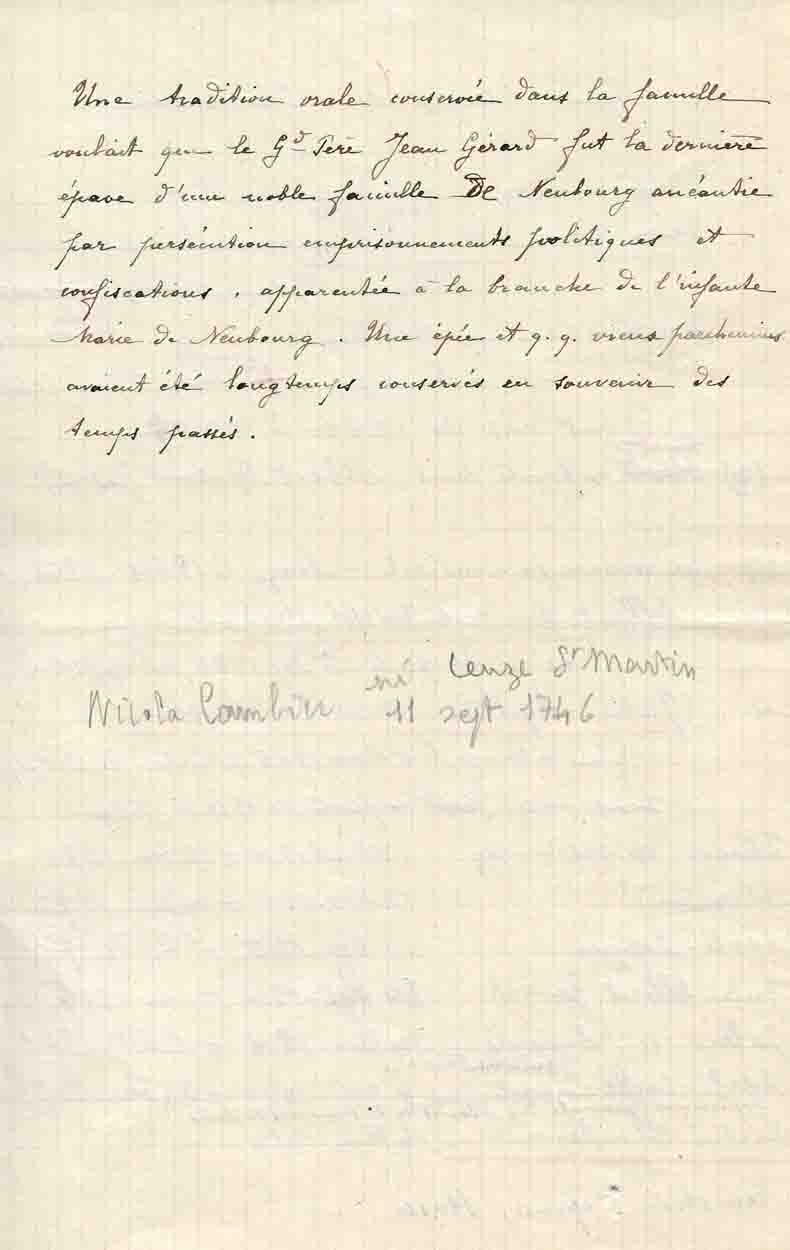 Une tradition orale conservée dans la famille
voulait que le Gd Père Jean Gérard fut la dernière
épave d'une noble famille De Neubourg anéantie
par persécution emprisonnements politiques et
confiscations, apparentée à la branche de l'infante
Marie de Neubourg. Une épée et q.q. vieux parchemins
avaient été longtemps conservés en souvenir des
temps passés.
né Leuze St Martin
Nicola Cambier 11 sept 1746